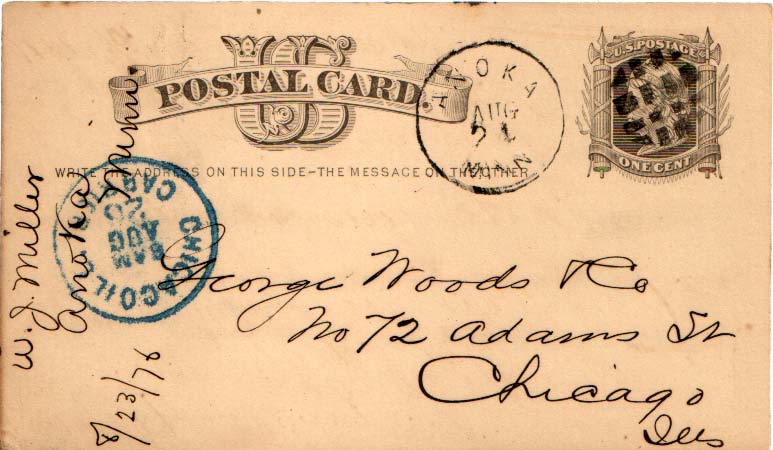 US
POSTAL CARD.
U.S. POSTAGE
ONE CENT
ANOKA
AUG
21
MINN
WRITE THE ADDRESS ON THIS SIDE–THE MESSAGE ON THE OTHER
CHICAGO ILL
AUG
George Woods & Co
No 72 Adams St
Chicago
Ills
W. J. Miller
Anoka Minn.
8/23/76